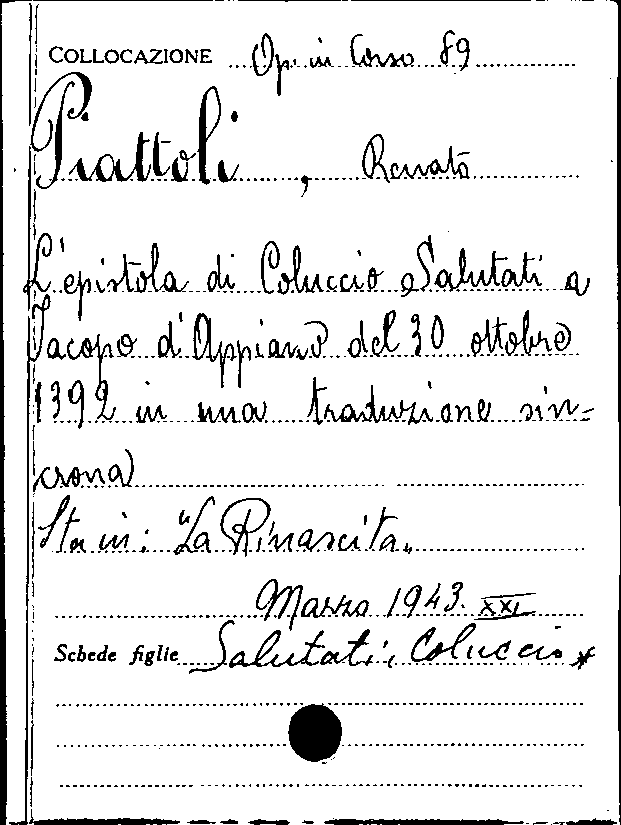 COLLOCAZIONE Op. in Corso 89
Piattoli, Renato
L'epistola di Coluccio Salutati a
Jacopo d'Appiano del 30 ottobre
1392 in una traduzione sin-
crona
Sta in: "La Rinascita"
Marzo 1943. XXI
Schede figlie Salutati, Coluccio *